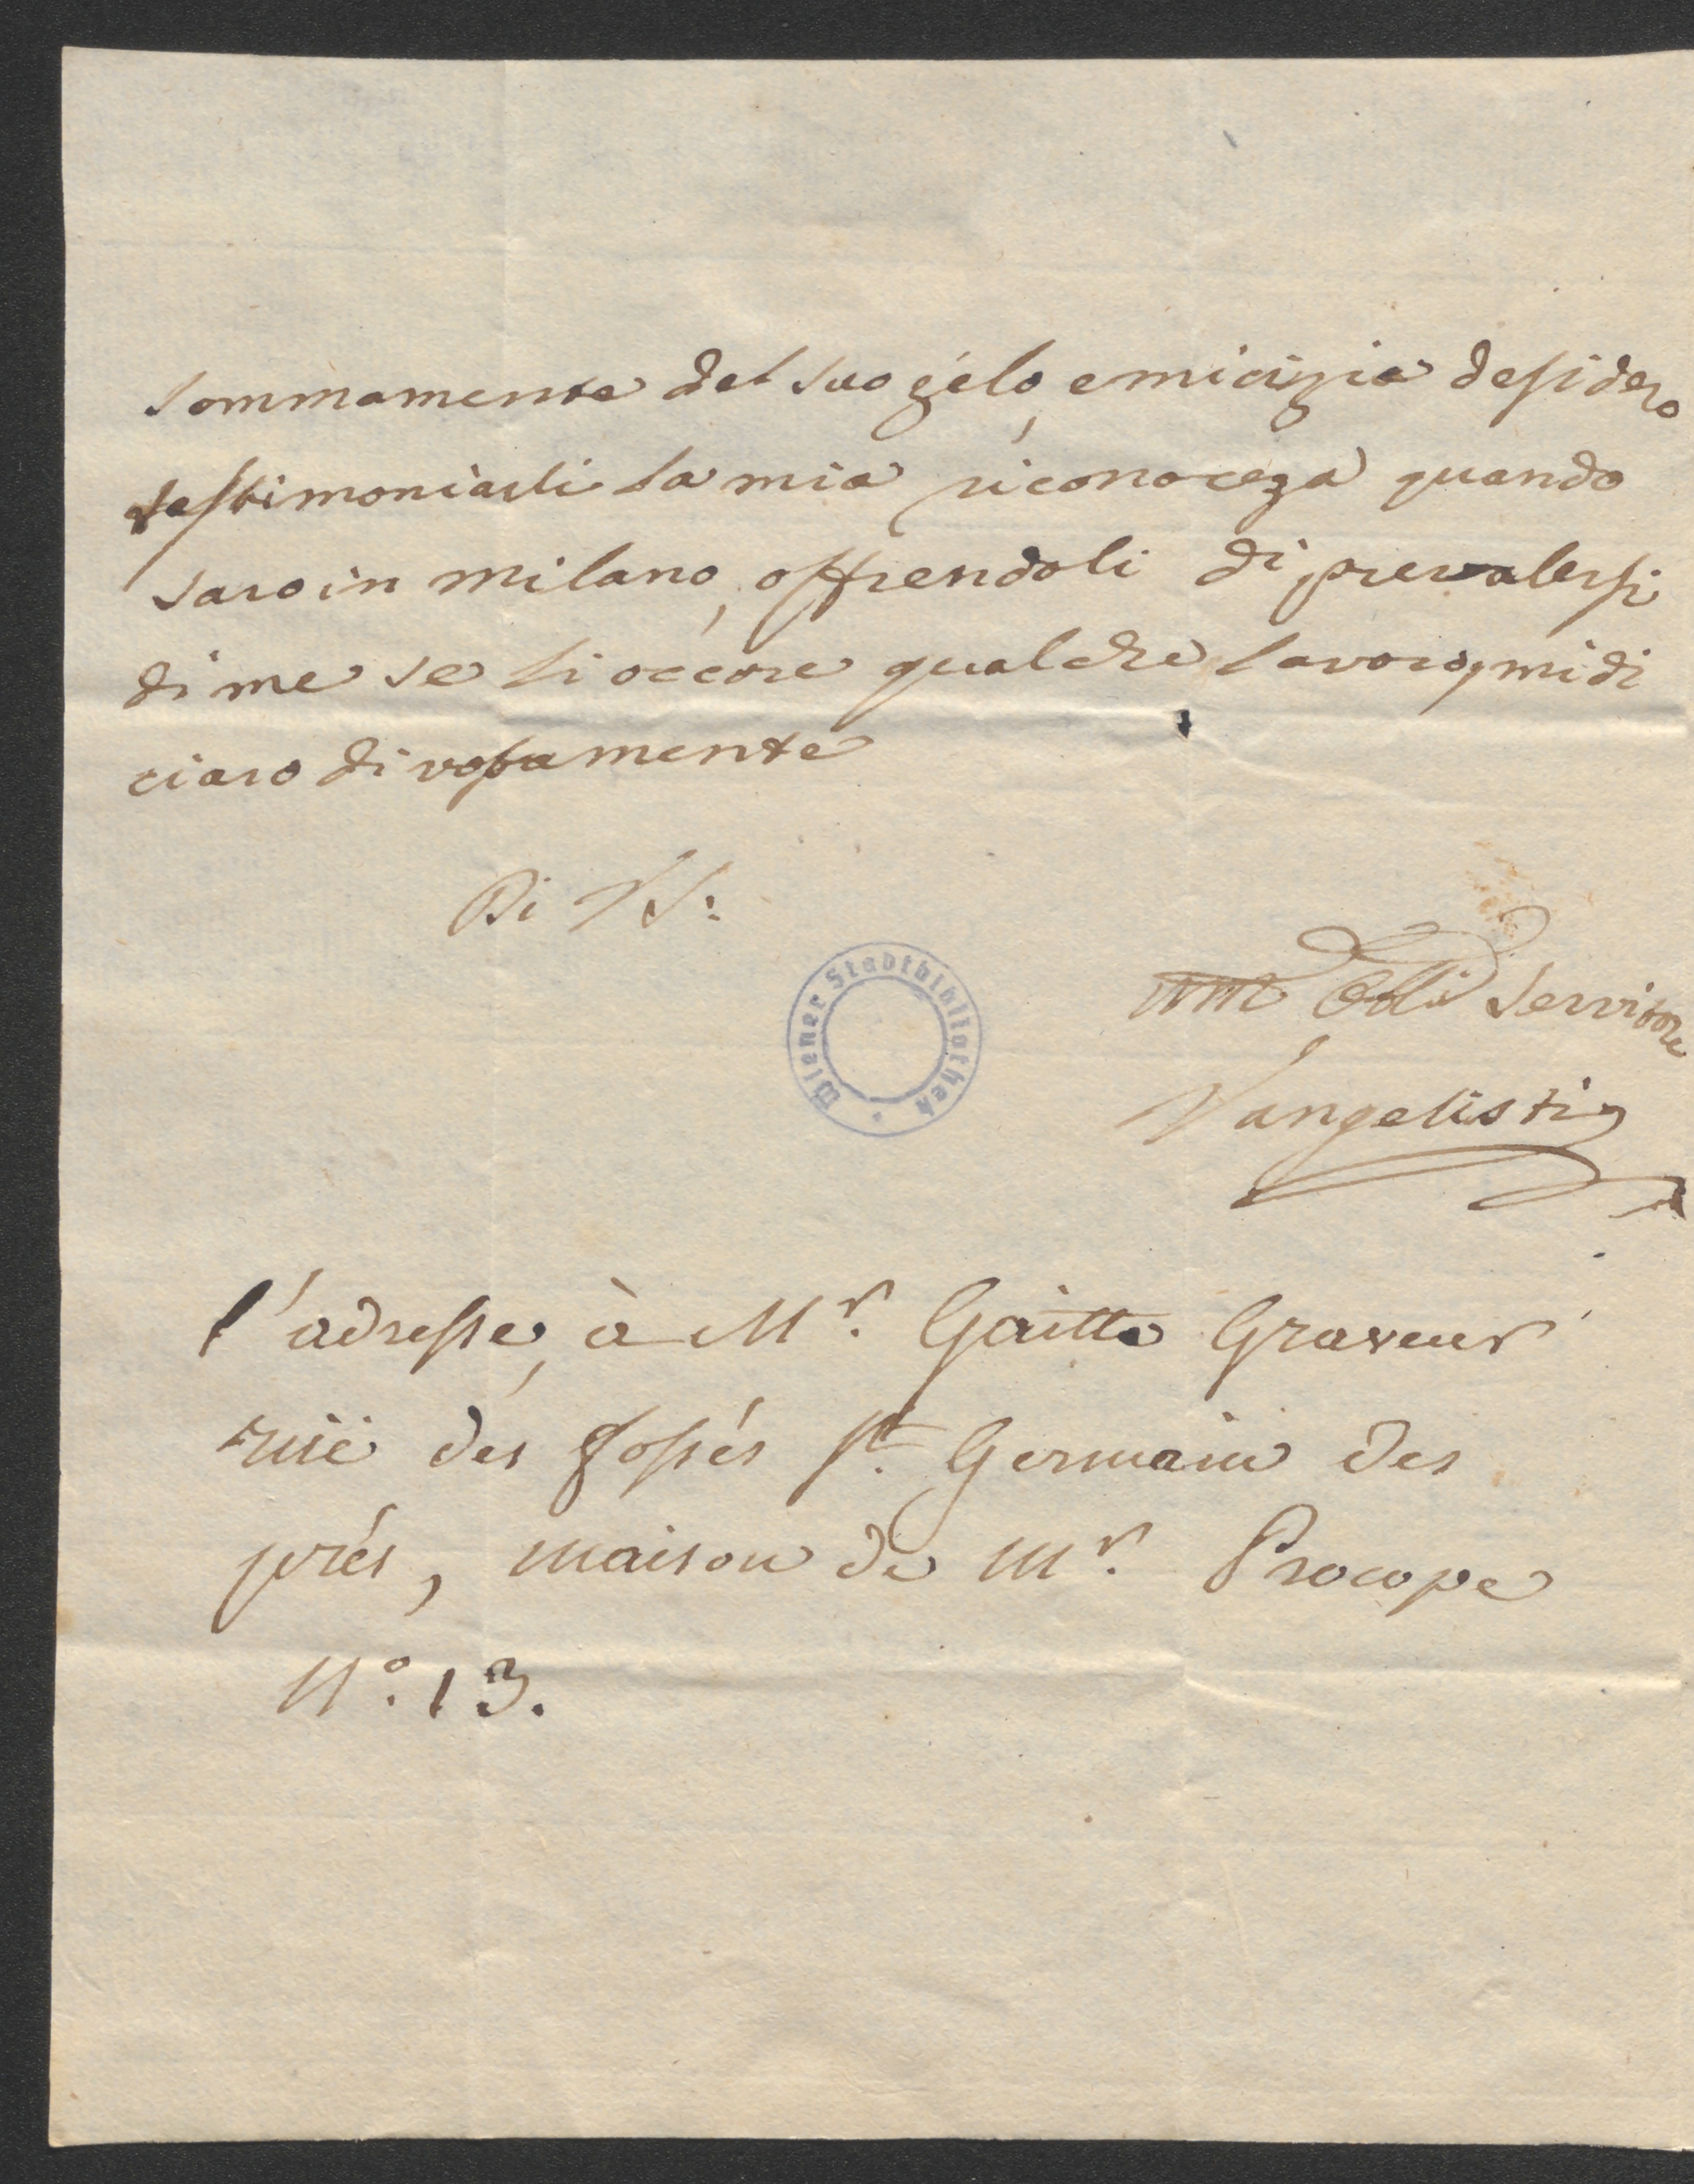 sommamente del suo zélo, emicizia desidero
testimoniarli la mia riconoceza quando
saro in milano, offrendoli di prevalersi
di me se li occore qualche lavoro, midi
ciaro divosamente
Di VS:
Wiener Stadtbibliothek
um Obb Servitore
Vangelisti
l'adresse, à Mr. Gaitte Graveur
ruë des fossés St. Germain des
prés, maison de Mr. Procope
No. 13.